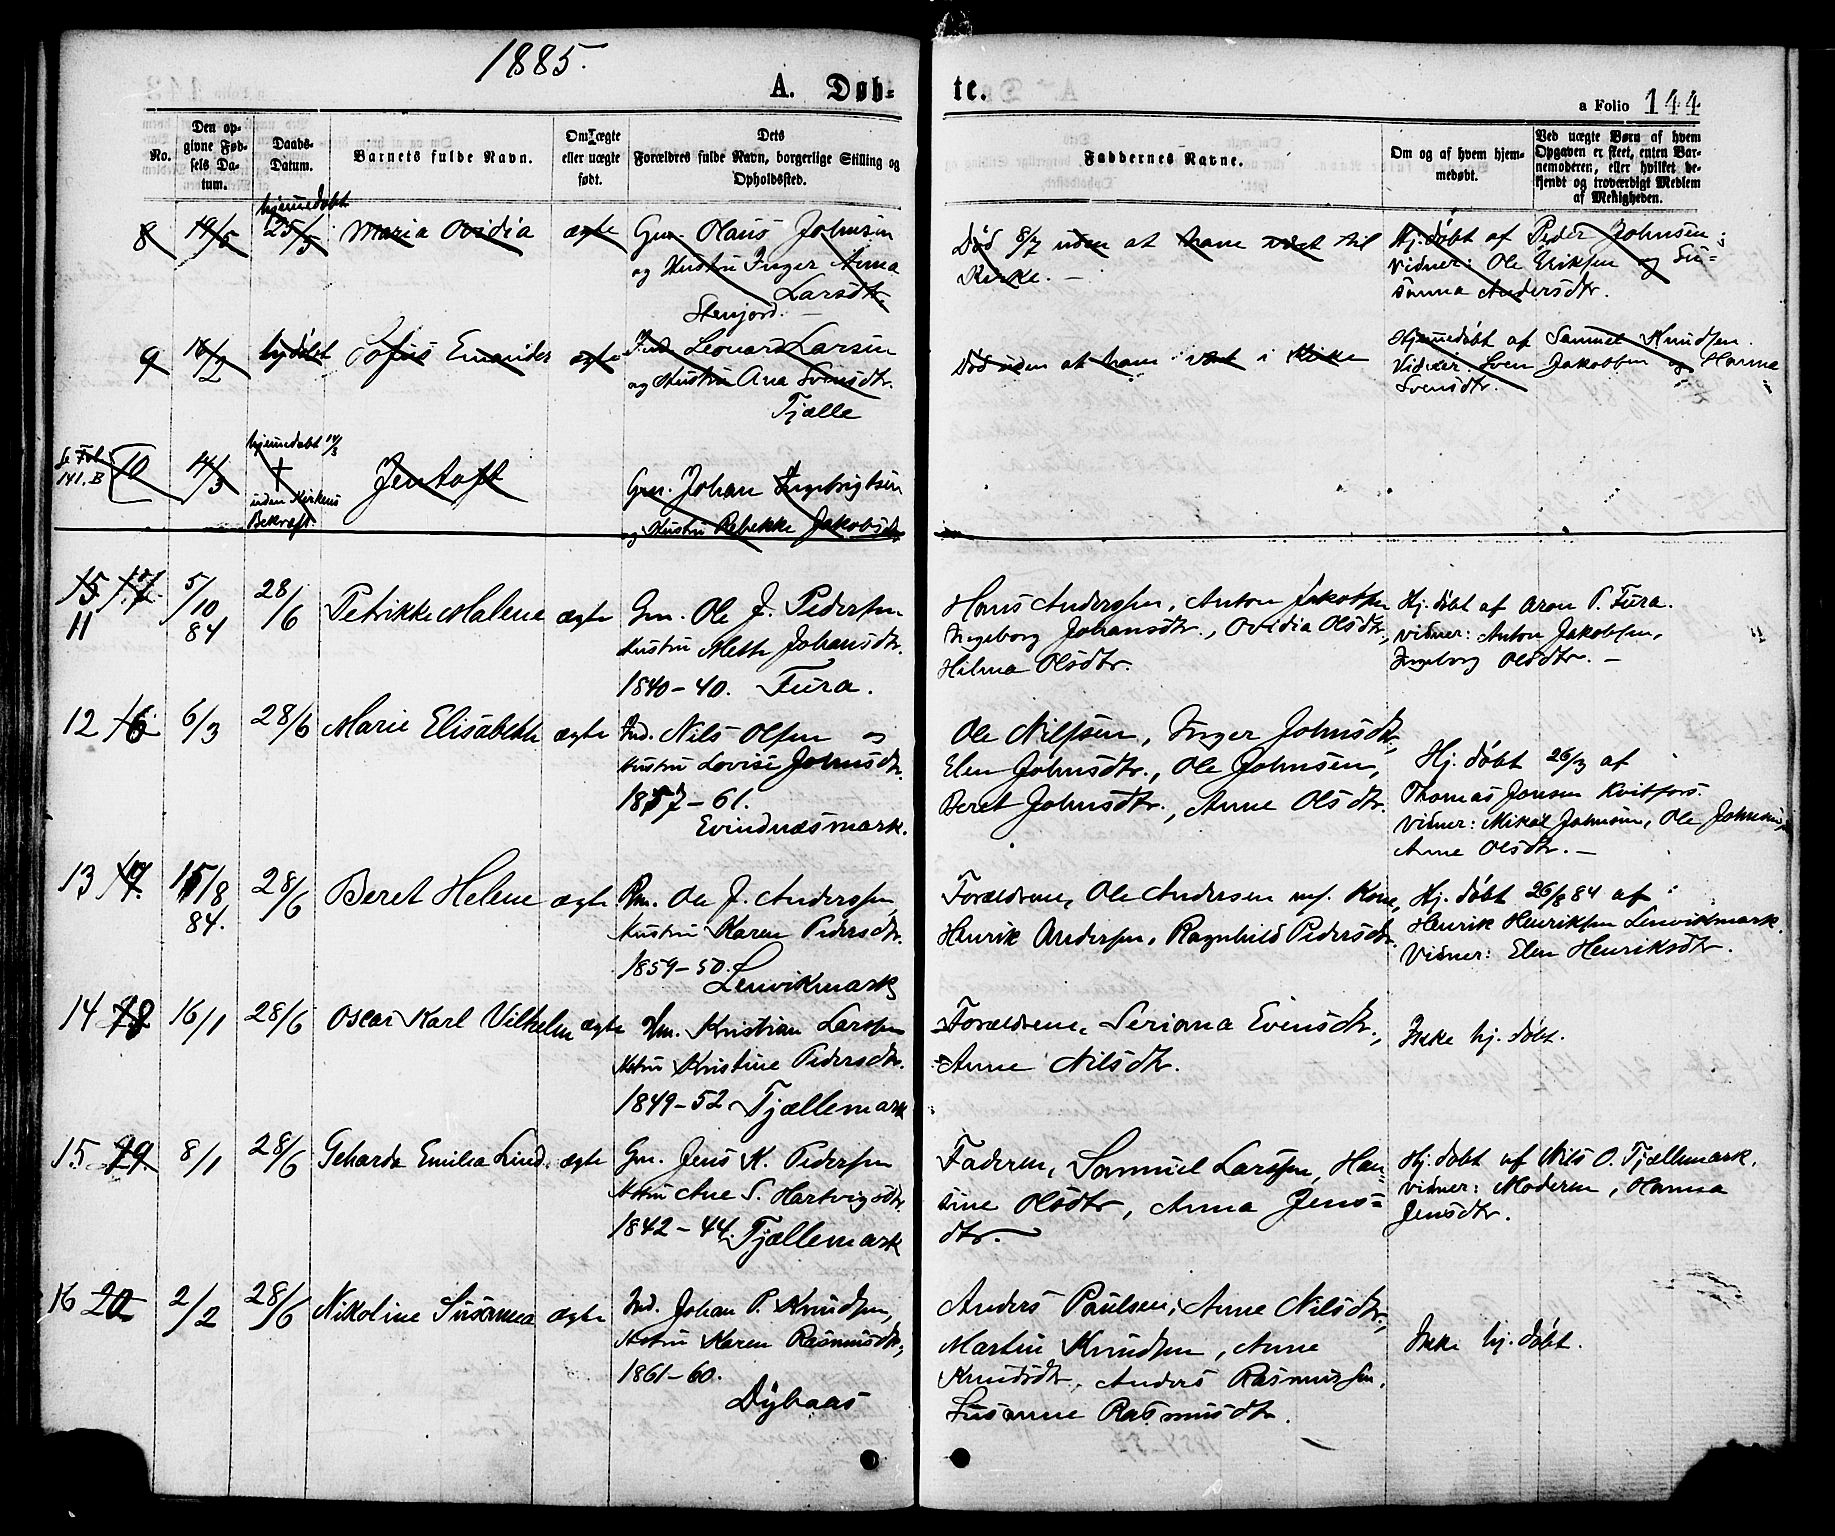 1885.
A. Døb-
te.
a Folio 144
No.
Den op-
givne Fød-
sels Da-
tum.
Daabs-
Datum.
Barnets fulde Navn.
Om ægte
eller uægte
født.
Dets
Forældres fulde Navn, borgerlige Stilling og
Opholdssted.
Faddernes Navne.
Om og af hvem hjem-
medøbt.
Ved uægte Børn af hvem
Opgaven er skeet, enten Bar-
nemoderen, eller hvilket be-
kjendt og troværdigt Medlem
af Menigheden.
8 19/5 hjemmedøbt
25/5 Maria Ovidia ægte Gm. Olaus Johnsen
og Hustru Inger Anna
Larsdtr.
Stenjord. –
Død 8/7 uden at have været til
Kirke. –
Hj. døbt af Peder Johnsen;
Vidner: Ole Eriksen og Su-
sanna Andersdtr.
9 16/2 Sofus ægte Ind. Leonard Larsen
og Hustru Ana Svensdtr.
Tjælle
Død uden at have været i Kirke
Hjemmedøbt af Samuel Knudsen.
Vidner: Sven Jakobsen og Hanna
Svensdtr.
Se Fol.
141. B 10 14/3 hjemmedøbt 14/3
†
uden Kirkens
Bekræft. Jentoft Gm. Johan Ingebrigtsen
og Hustru Rebekke Jakobsdtr.
15 17
11 5/10
84 28/6 Petrikke Malene ægte Gm. Ole J. Pedersen
Hustru Mette Johansdtr.
1840-40. Fura.
Hans Anderssen, Anton Jakobsen
Ingeborg Johansdtr., Ovidia Olsdtr.,
Hilma Olsdtr.
Hj. døbt af Aron P. Fura.
Vidner: Anton Jakobsen,
Ingeborg Olsdtr. –
12 16 6/3 28/6 Marie Elisabeth ægte Ind. Nils Olsen og
Hustru Lovise Johnsdtr.
1857-61.
Evindnæsmark.
Ole Nilssen, Inger Johnsdtr.,
Elen Johnsdtr., Ole Johnsen,
Beret Johnsdtr., Anne Olsdtr.
Hj. døbt 26/3 af
Thomas Jonsen Kvitfors.
Vidner: Mikal Johnsen, Ole Johnsen,
Anne Olsdtr. –
13 17. 15/8
84. 28/6 Beret Helene ægte Rm. Ole J. Anderssen,
Hustru Karen Pedersdtr.
1859-50.
Lenvikmark
Forældrene, Ole Andersen m/. Kone,
Henrik Andersen, Ragnhild Pedersdtr.
Hj. døbt 26/8 84 af
Henrik Henriksen Lenvikmark.
Vidner: Elen Henriksdtr.
14 18 16/1 28/6 Oscar Karl Vilhelm ægte Hm. Kristian Larsen
Hstru Kristine Pedersdtr.
1849-52 Tjællemark
Forældrene, Seriana Evensdtr.,
Anne Nilsdtr.
Ikke hj. døbt.
15 19 8/1 28/6 Geharda Emilia Lind. ægte Gm. Jens K. Pedersen
Hstru Ane S. Hartvigsdtr.
1842-44. Tjællemark
Faderen, Samuel Larssen, Han-
sine Olsdtr, Anna Jens-
dtr. –
Hj. døbt af Nils O. Tjællemark.
Vidner: Moderen, Hanna
Jensdtr.
16 20 2/2 28/6 Nikoline Susanna ægte Ind. Johan P. Knudsen,
Hstru Karen Rasmusdtr,
1861-60.
Dybaas
Anders Paulsen, Anne Nilsdtr.,
Martin Knudsen, Anne
Knudsdtr, Anders Rasmussen,
Susanne Rasmusdtr.
Ikke hj. døbt.